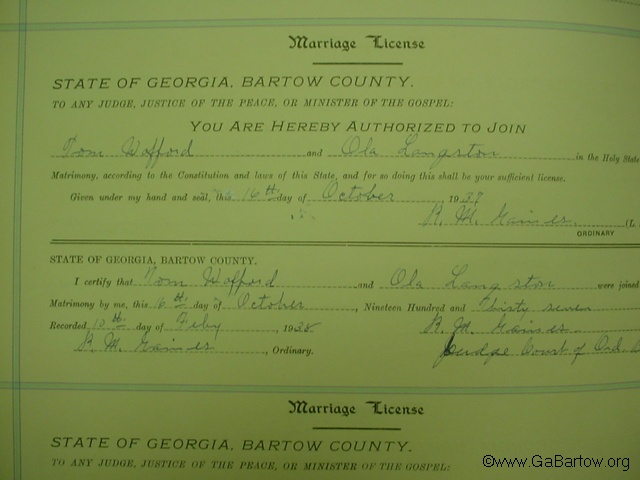 Marriage License
STATE OF GEORGIA, BARTOW COUNTY.
TO ANY JUDGE, JUSTICE OF THE PEACE, OR MINISTER OF THE GOSPEL:
YOU ARE HEREBY AUTHORIZED TO JOIN
Tom Wofford and Ola Langston in the Holy State
Matrimony, according to the Constitution and laws of this State, and for so doing this shall be your sufficient license.
Given under my hand and seal, this 16th day of October 1937
R. M. Gaines (L
ORDINARY
STATE OF GEORGIA, BARTOW COUNTY.
I certify that Tom Wofford and Ola Langston were joined
Matrimony by me, this 16th day of October, Nineteen Hundred and Thirty seven
Recorded 10th day of Feby, 1938 R. M. Gaines
R. M. Gaines, Ordinary. Judge Court of Ord.
Marriage License
STATE OF GEORGIA, BARTOW COUNTY.
TO ANY JUDGE, JUSTICE OF THE PEACE, OR MINISTER OF THE GOSPEL:
©www.GaBartow.org